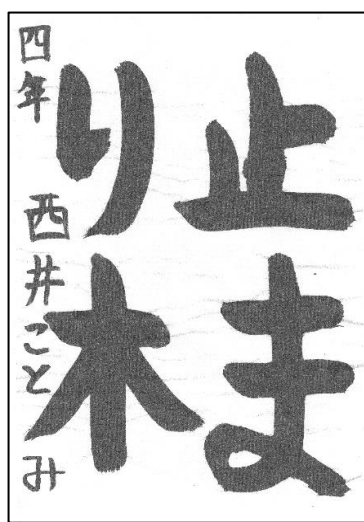 止ま
り木
四年 西井ことみ